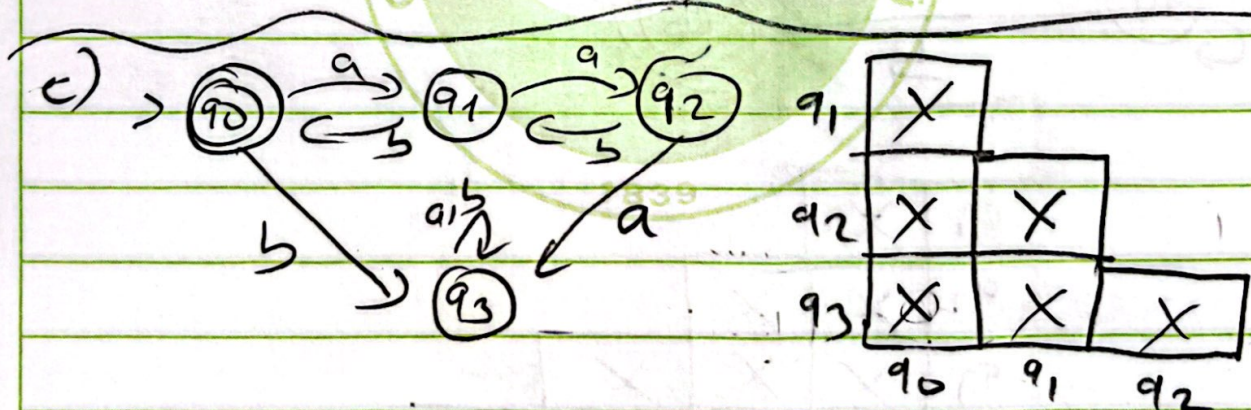 c) > q0 a b q1 a b q2
b a,b a
q3
1839
q1 X
q2 X X
q3 X X X
q0 q1 q2